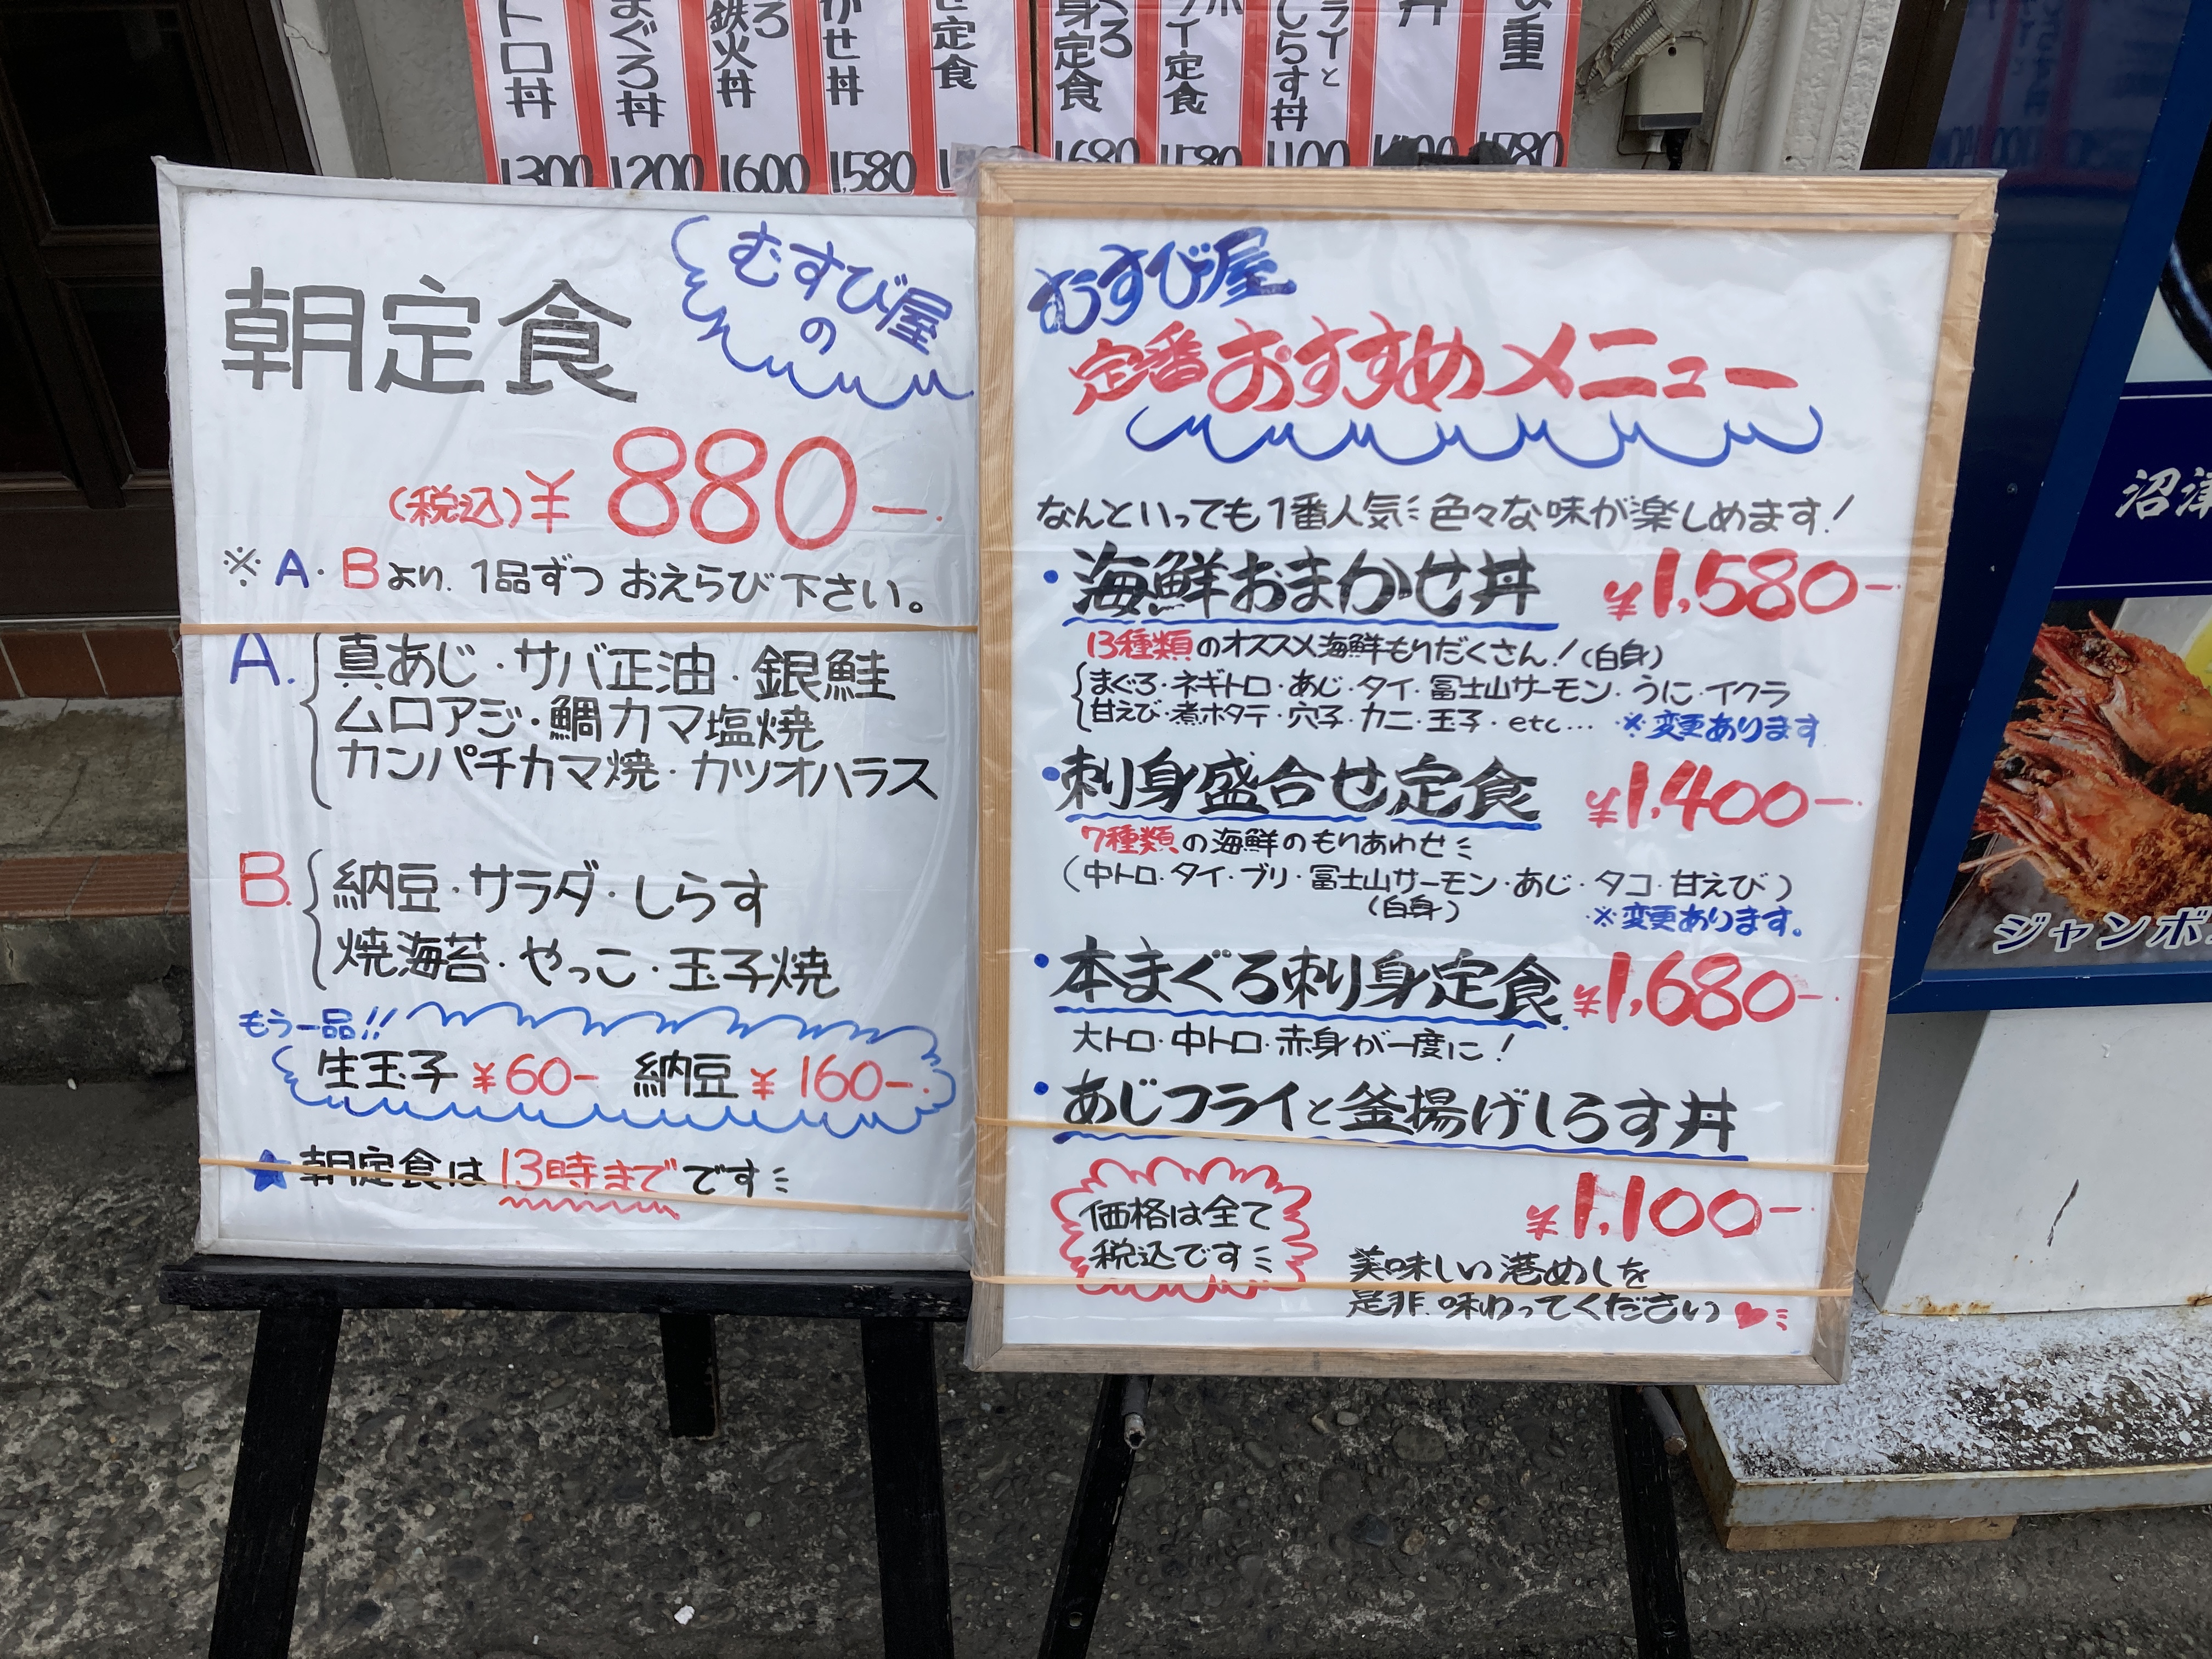 トロ丼
1300
まぐろ丼
1200
ろ
鉄火丼
1600
かせ丼
1,580
定食
身定食
1680
イ定食
1580
ライと
しらす丼
1100
丼
重
1780
むすび屋
の
朝定食
(税込)¥880ー.
※A・Bより、1品ずつおえらび下さい。
A. 真あじ・サバ正油・銀鮭
ムロアジ・鯛カマ塩焼
カンパチカマ焼・カツオハラス
B. 納豆・サラダ・しらす
焼海苔・やっこ・玉子焼
もう一品!!
生玉子 ¥60ー 納豆 ¥160ー.
★朝定食は13時までです
むすび屋
定番おすすめメニュー
なんといっても1番人気 色々な味が楽しめます!
・海鮮おまかせ丼 ¥1,580ー
13種類のオススメ海鮮もりだくさん!(白身)
まぐろ・ネギトロ・あじ・タイ・富士山サーモン・うに・イクラ
甘えび・煮ホタテ・穴子・カニ・玉子・etc... ※変更あります
・刺身盛合せ定食 ¥1,400ー
7種類の海鮮のもりあわせ
(中トロ・タイ・ブリ・富士山サーモン・あじ・タコ・甘えび)
(白身)
※変更あります。
・本まぐろ刺身定食 ¥1,680ー
大トロ・中トロ・赤身が一度に!
・あじフライと釜揚げしらす丼
¥1,100ー
価格は全て
税込です
美味しい港めしを
是非、味わってください
沼津
ジャンボ